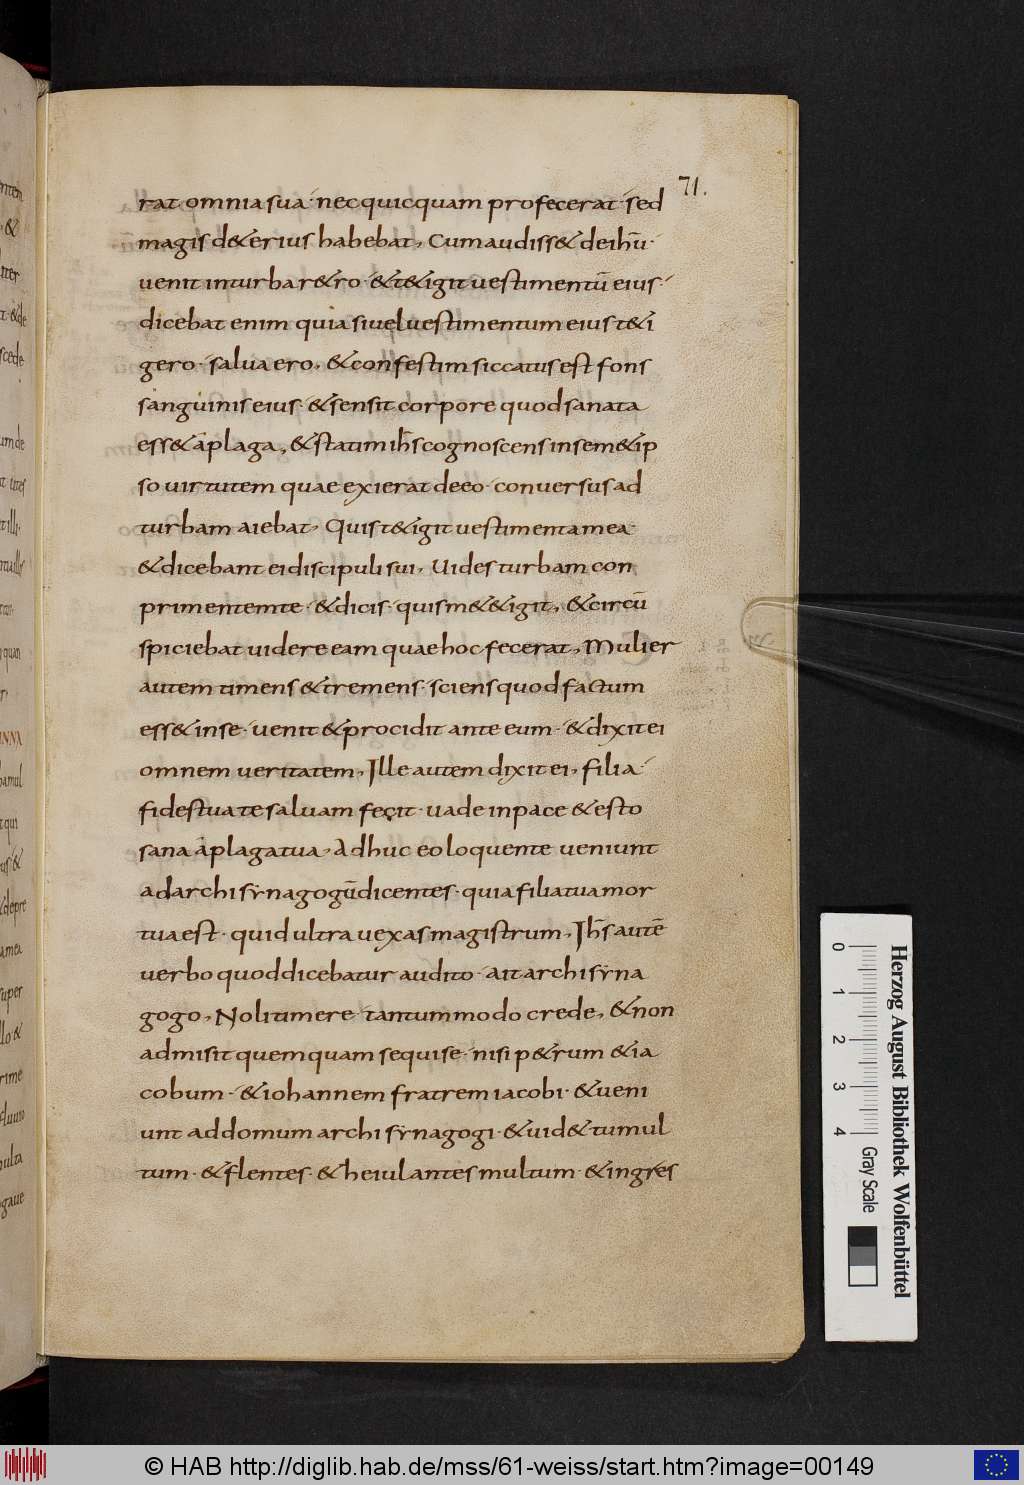 71.
rat omnia sua· nec quicquam profecerat· sed
magis d&erius habebat, Cum audiss& de ihū·
uenit in turba r&ro· &t&igit uestimentū eius·
dicebat enim quia si uel uestimentum eius t&i
gero· salua ero, & confestim siccatus est fons
sanguinis eius· & sensit corpore quod sanata
ess& a plaga, & statim ih̄s cognoscens in sem&ip
so uirtutem quae exierat de eo· conuersus ad
turbam aiebat, Quis t&igit uestimenta mea·
& dicebant ei discipuli sui, Uides turbam con
primentem te· & dicis· quis me t&igit, & circū
spiciebat uidere eam quae hoc fecerat, Mulier
autem timens & tremens· sciens quod factum
ess& in se· uenit & procidit ante eum· & dixit ei
omnem ueritatem, Ille autem dixit ei, filia·
fides tua te saluam fecit· uade in pace & esto
sana a plaga tua, Adhuc eo loquente ueniunt
ad archisynagogū dicentes· quia filia tua mor
tua est· quid ultra uexas magistrum, Ih̄s autē
uerbo quod dicebatur audito· ait archisyna
gogo, Noli timere tantummodo crede, & non
admisit quemquam sequi se· nisi p&rum & ia
cobum· & iohannem fratrem iacobi· & ueni
unt ad domum archisynagogi· & uid& tumul
tum· & flentes· & heiulantes multum· & ingres
Herzog August Bibliothek Wolfenbüttel
0 1 2 3 4 Gray Scale
© HAB http://diglib.hab.de/mss/61-weiss/start.htm?image=00149